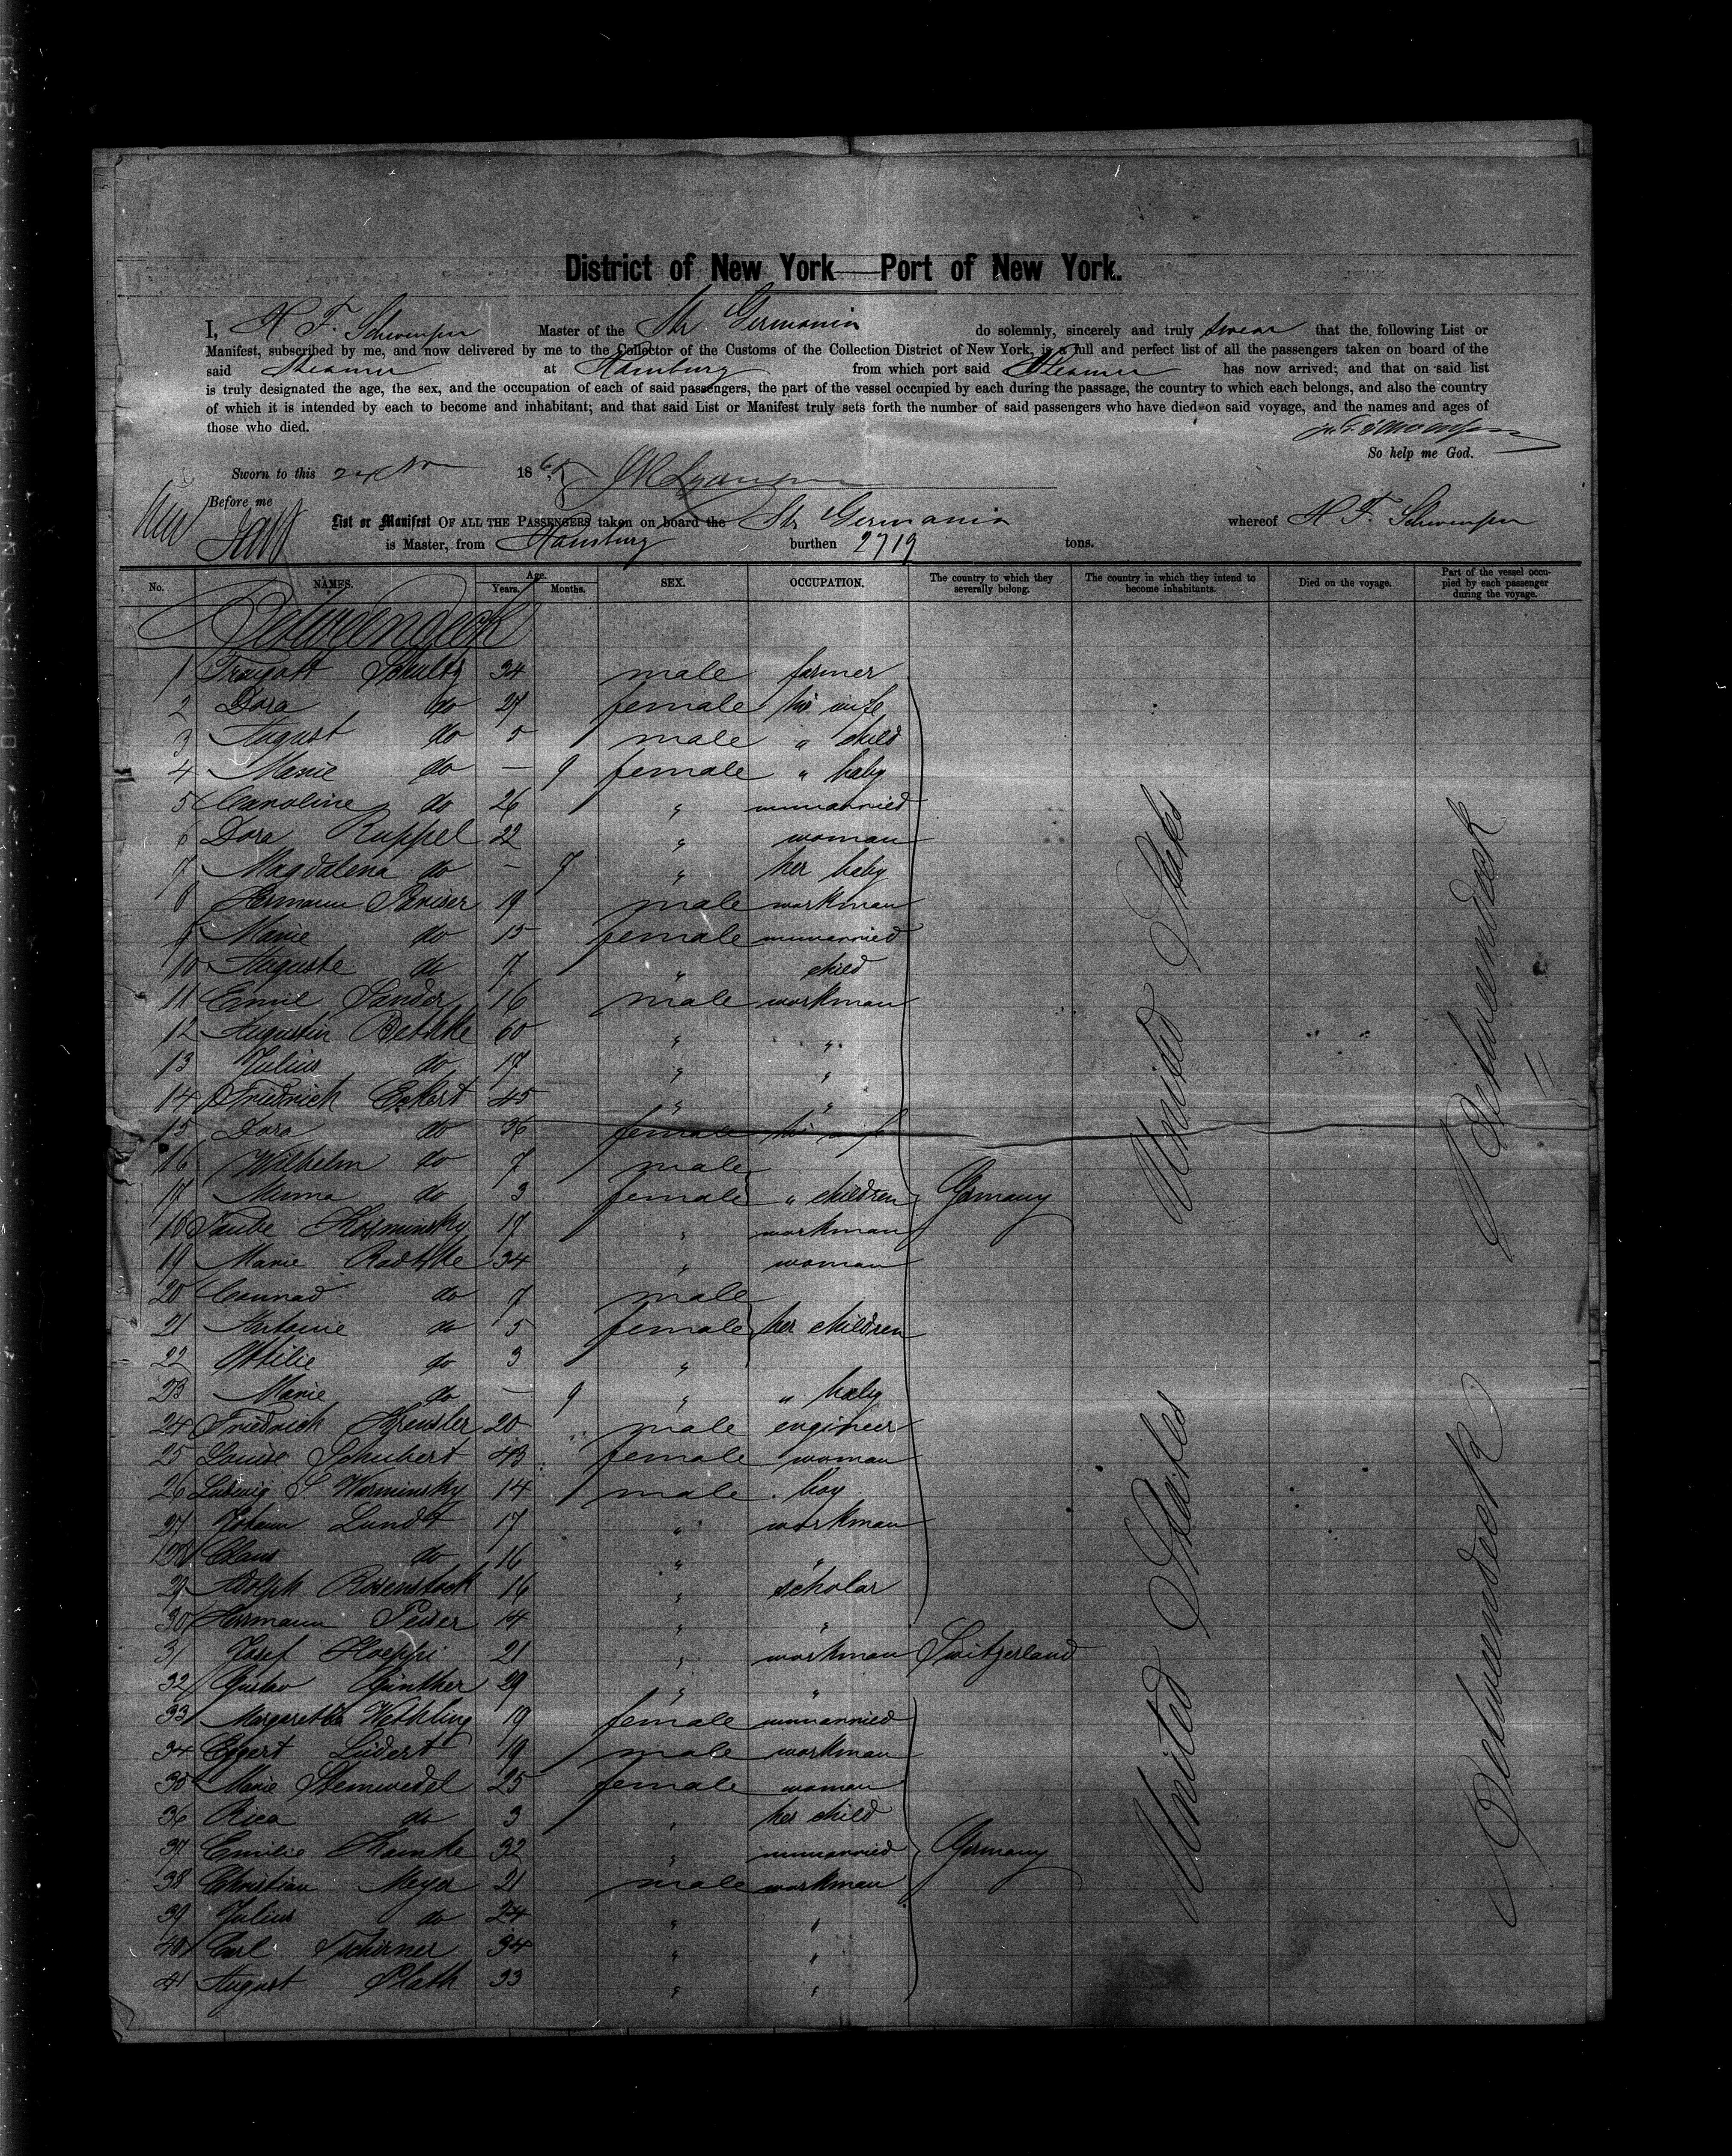 District of New York—Port of New York.
I, H. F. Schwensen Master of the Str Germania do solemnly, sincerely and truly swear that the following List or
Manifest, subscribed by me, and now delivered by me to the Collector of the Customs of the Collection District of New York, is a full and perfect list of all the passengers taken on board of the
said Steamer at Hamburg from which port said Steamer has now arrived; and that on said list
is truly designated the age, the sex, and the occupation of each of said passengers, the part of the vessel occupied by each during the passage, the country to which each belongs, and also the country
of which it is intended by each to become and inhabitant; and that said List or Manifest truly sets forth the number of said passengers who have died on said voyage, and the names and ages of
those who died.
So help me God.
Sworn to this 24 Nov 18
Before me
List or Manifest OF ALL THE PASSENGERS taken on board the Str Germania whereof H. F. Schwensen
is Master, from Hamburg burthen 2719 tons.
No. NAMES. Age. Years. Months. SEX. OCCUPATION. The country to which they severally belong. The country in which they intend to become inhabitants. Died on the voyage. Part of the vessel occupied by each passenger during the voyage.
Betweendeck
1 Traugott Schultz 34 male farmer
2 Dora do 27 female his wife
3 August do 5 male " child
4 Marie do — 9 female " baby
5 Caroline do 26 " unmarried
6 Dora Ruppel 22 " woman
7 Magdalena do — 7 " her baby
8 Hermann 19 male workman
9 Marie do 15 female unmarried
10 Auguste do 7 " child
11 Emil Sander 16 male workman
12 Augustin Bethke 60 " "
13 Julius do 17 " "
14 Friedrich Eckert 45 " "
15 Dora do 36 female his wife
16 Wilhelm do 7 male
17 Minna do 3 female " children Germany
18 Taube Kosminsky 17 " workman
19 Marie Radthke 34 " woman
20 Conrad do 7 male
21 Antonie do 5 female her children
22 Ottilie do 3 "
23 Marie do — 9 " " baby
24 Friedrich Kreusler 20 male engineer
25 Louise Schubert 43 female woman
26 Ludwig S. Warminsky 14 male boy
27 Johann Lundt 17 " workman
28 Claus do 16 " "
29 Adolph Rosenstock 16 " scholar
30 Herrmann 14 " "
31 Josef Hoeppi 21 " workman Switzerland
32 Gustav Günther 29 " "
33 Margaretha Wethling 19 female unmarried
34 Eggert Lüdert 19 male workman
35 Marie Stemwedel 25 female woman
36 Rica do 3 " her child
37 Emilie Kamke 32 " unmarried Germany
38 Christian Meyer 21 male workman
39 Julius do 24 " "
40 Carl Tschirner 34 " "
41 August Plath 33 " "
United States
United States
Betweendeck
Betweendeck